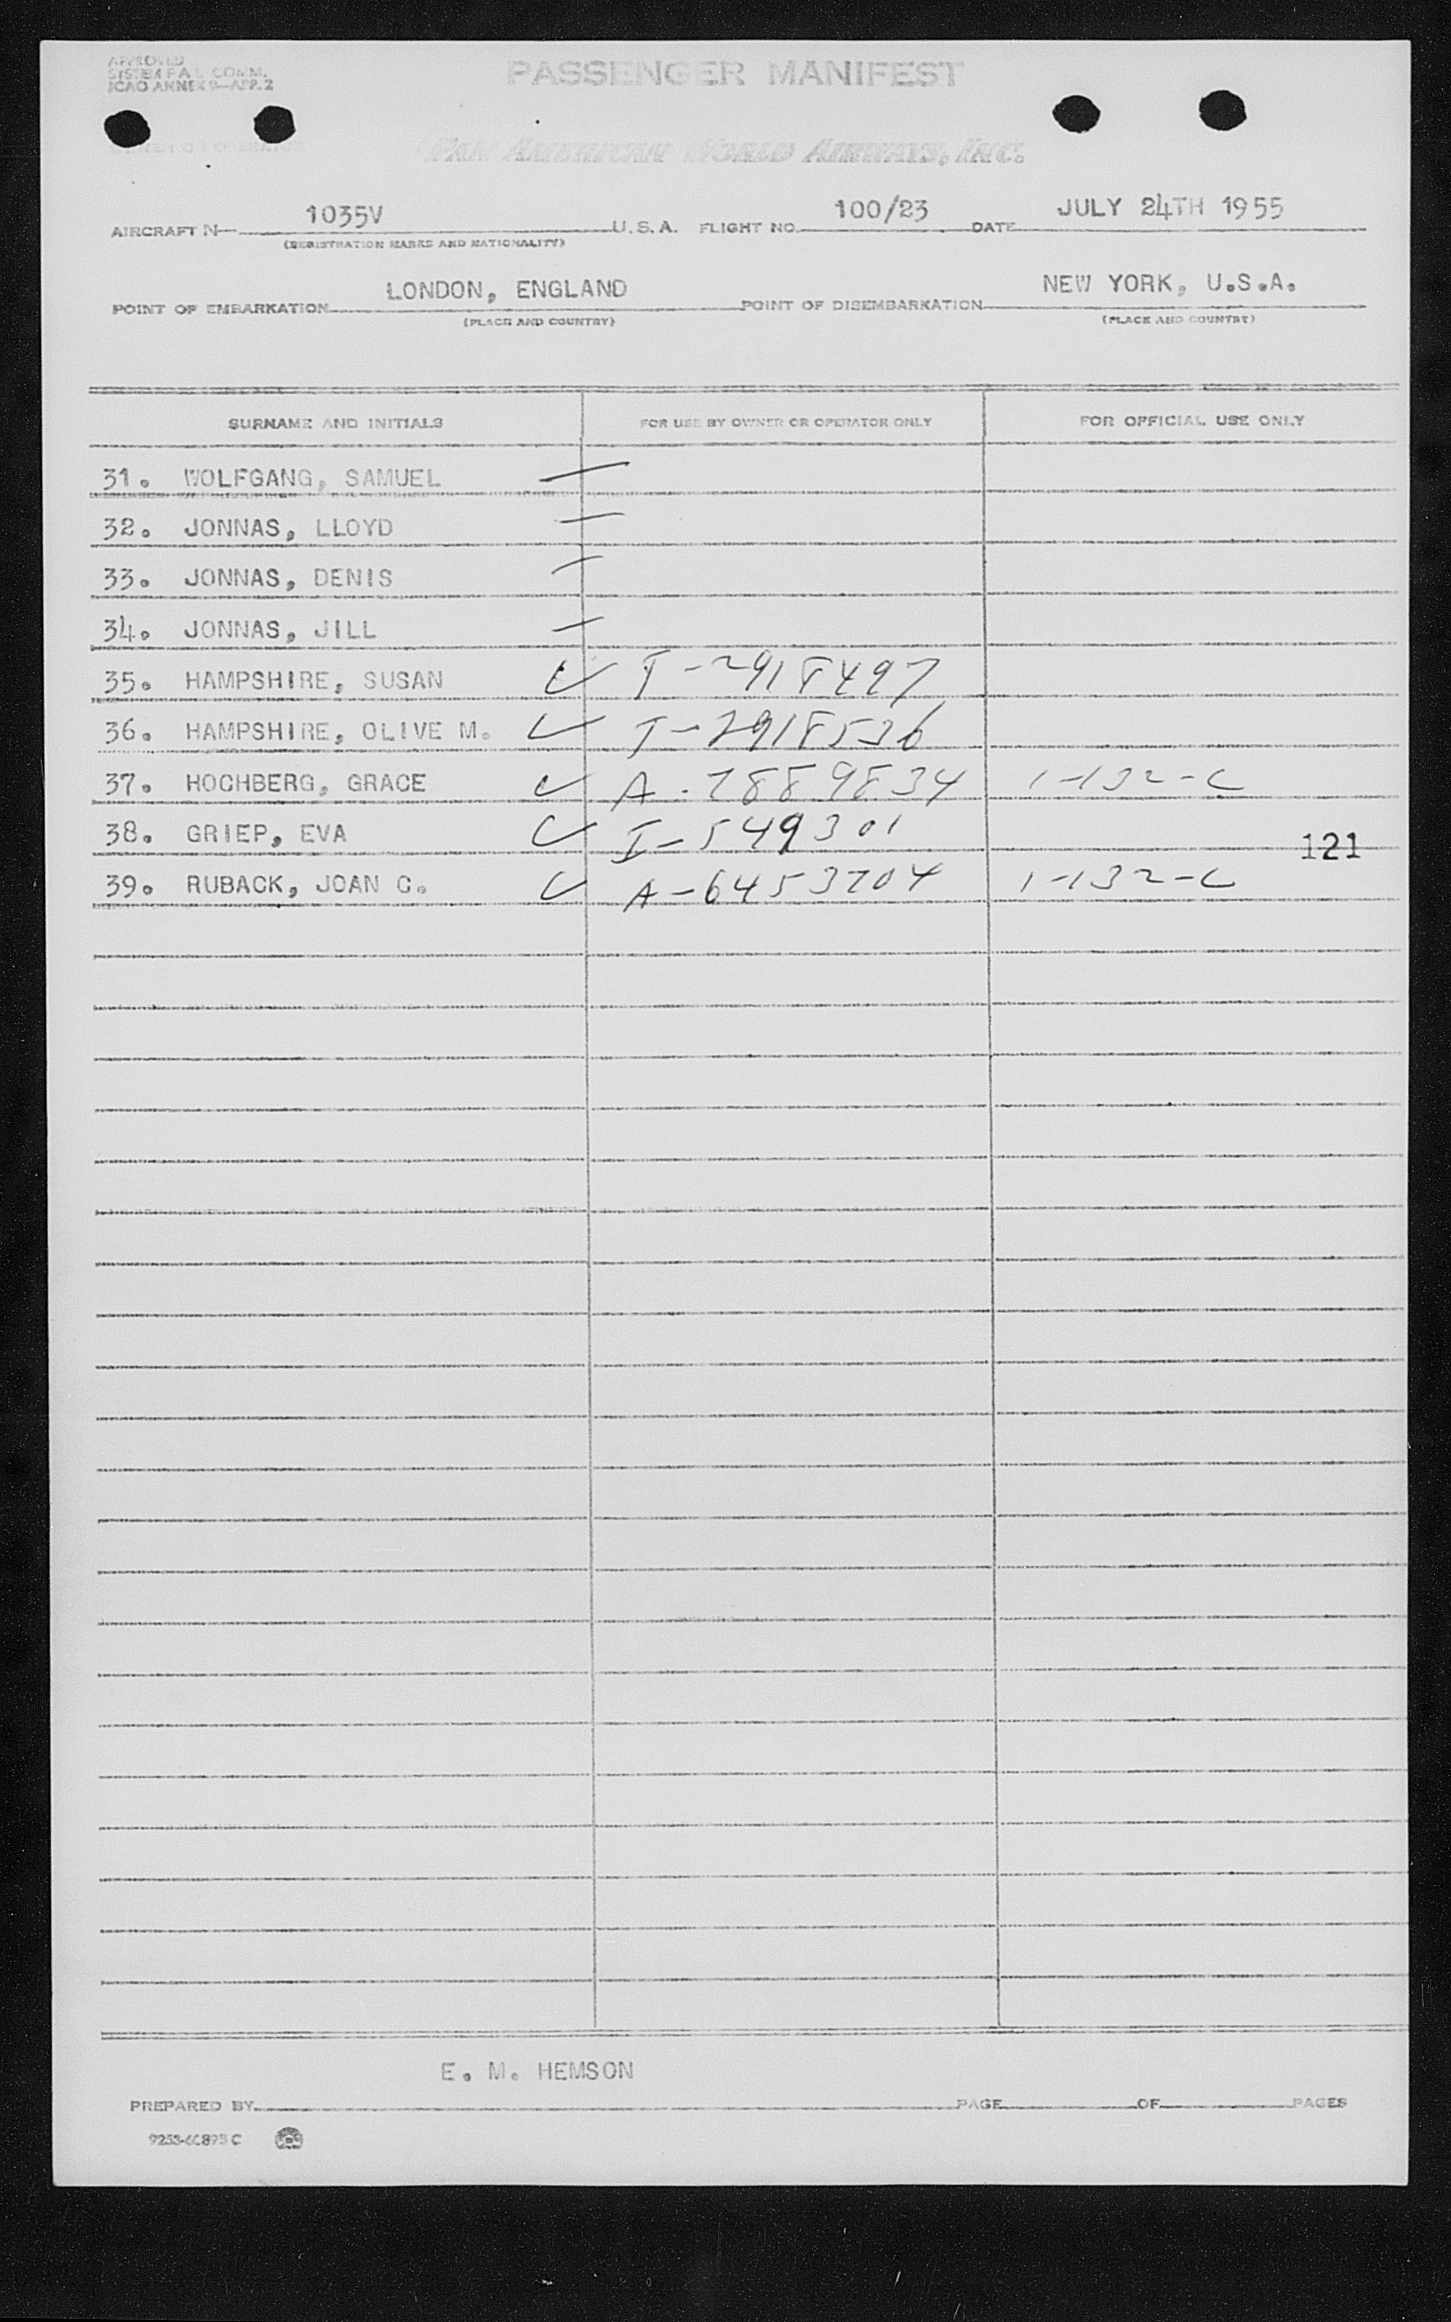 APPROVED
SYSTEM P.A.L. COMM.
ICAO ANNEX 9—APP. 2
PASSENGER MANIFEST
PAN AMERICAN WORLD AIRWAYS, INC.
AIRCRAFT N 1035V U.S.A. FLIGHT NO. 100/23 DATE JULY 24TH 1955
(REGISTRATION MARKS AND NATIONALITY)
POINT OF EMBARKATION LONDON, ENGLAND POINT OF DISEMBARKATION NEW YORK, U.S.A.
(PLACE AND COUNTRY) (PLACE AND COUNTRY)
SURNAME AND INITIALS FOR USE BY OWNER OR OPERATOR ONLY FOR OFFICIAL USE ONLY
31. WOLFGANG, SAMUEL —
32. JONNAS, LLOYD —
33. JONNAS, DENIS —
34. JONNAS, JILL —
35. HAMPSHIRE, SUSAN ✓ I-2918497
36. HAMPSHIRE, OLIVE M. ✓ I-2918536
37. HOCHBERG, GRACE ✓ A-7889834 1-132-C
38. GRIEP, EVA ✓ I-549301 121
39. RUBACK, JOAN C. ✓ A-6453704 1-132-C
E. M. HEMSON
PREPARED BY PAGE OF PAGES